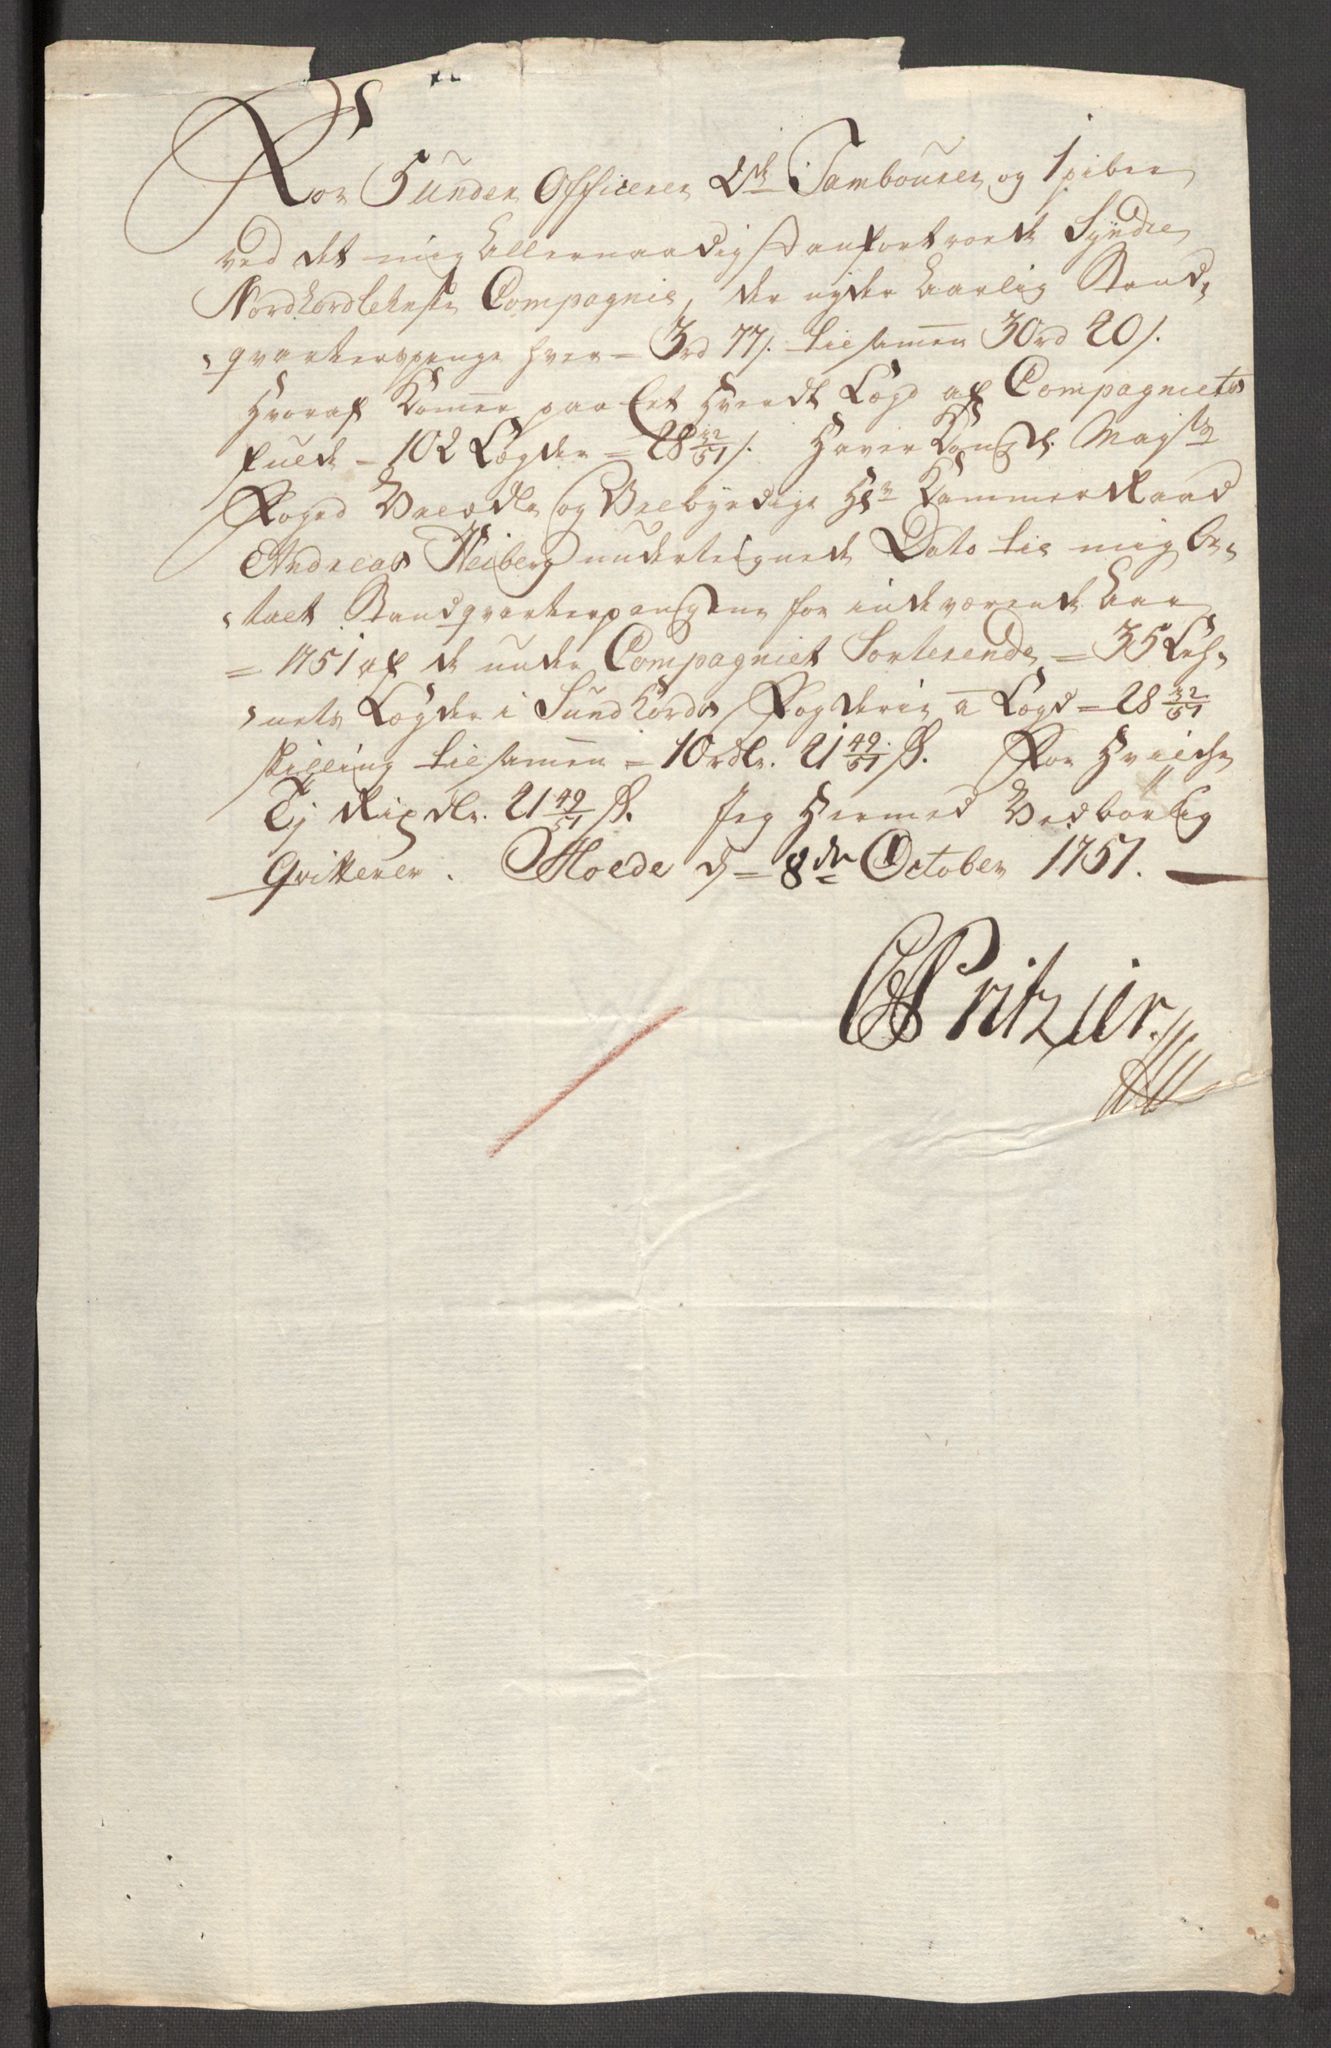 For 5 under Officerer 2de Tambourer og 1 piber
ved det mig Allernaadigst anfortroede Syndre
Nordhordlehnske Compagnie, der nyder Aarlig Stand-
-qvarteerspenge hver = 3rd 77s. tilsamen 30rd 20s.
Hvoraf Komer paa Eet Hverdt Lægd af Compagniets
fulde = 102 Lægder = 28 32/51 s. Haver Kongl. Mayts
Foged Velædle og Velbyrdige Hr Kammer Raad
Andreas Heiberg underteignede Dato til mig be-
-talt Standqvarteerpengene for indeværende Aar
= 1751 af de under Compagniet Sorterende = 35 Leh-
-nets Lægder i Sundhords Fogderie a Lægd = 28 32/51
skilling tilsamen = 10rdlr. 21 49/51 s. For Hvilche
Tj Rixdlr. 21 49/51 s. Jeg Hermed Vedbørlig
Qvitterer. Floede d = 8de October 1751.
Pritzier.